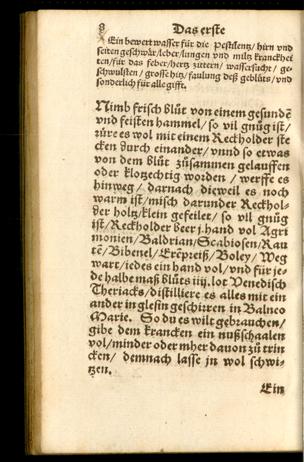 8 Das erste
Ein bewert wasser für die Pestilentz/ hirn vnd
seiten geschwär/ leber/ lungen vnd miltz kranckhei
ten/ für das feber/ hertz zittern/ wassersucht/ ge-
schwulsten/ grosse hitz/ faulung deß geblüts/ vnd
sonderlich für alle gifft.
Nimb frisch blůt von einem gesundē
vnd feisten hammel/ so vil gnůg ist/
rüre es wol mit einem Reckholder ste
cken durch einander/ vnnd so etwas
von dem blůt zůsammen gelauffen
oder klotzechtig worden / werffe es
hinweg / darnach dieweil es noch
warm ist/ misch darunder Reckhol-
der holtz/ klein gefeilet/ so vil gnůg
ist/ Reckholder beer j. hand vol Agri
monien/ Baldrian/ Scabiosen/ Rau
tē/ Bibenel/ Erēpreiß/ Boley/ Weg
wart/ iedes ein hand vol/ vnd für je-
de halbe maß blůts iiij. lot Venedisch
Theriacks/ distilliere es alles mit ein
ander in glesin geschirren in Balneo
Marie. So du es wilt gebrauchen/
gibe dem krancken ein nußschaalen
vol/ minder oder mher dauon zů trin
cken/ demnach lasse jn wol schwi-
tzen.
Ein